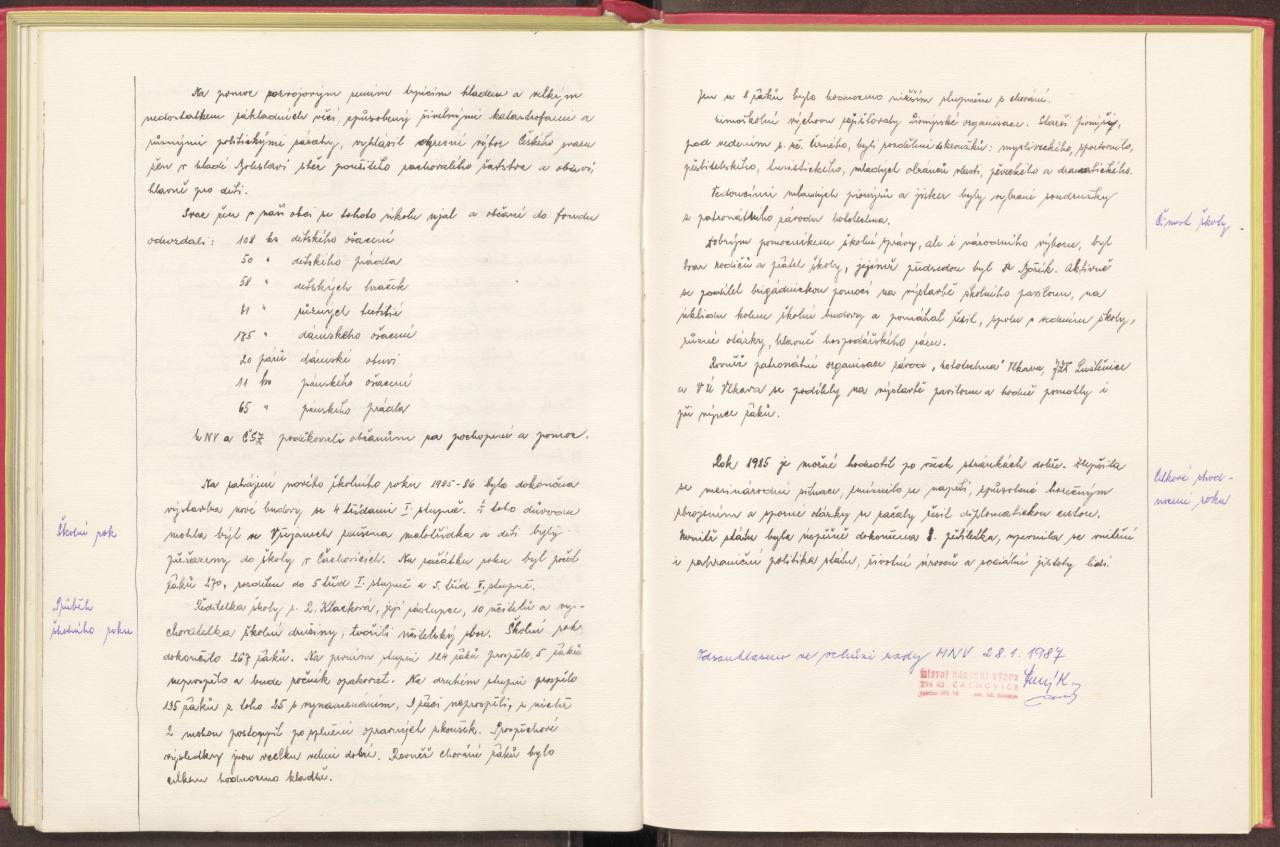 Na pomoc rozvojovým zemím trpícím hladem a velkým
nedostatkem základních věcí, způsobený živelnými katastrofami a
různými politickými zásahy, vyhlásil okresní výbor Českého svazu
žen v Mladé Boleslavi sběr použitého zachovalého šatstva a obuvi
hlavně pro děti.
Svaz žen v naší obci se tohoto úkolu ujal a občané do fondu
odevzdali: 108 ks dětského ošacení
50 " dětského prádla
58 " dětských hraček
81 " různých textilií
175 " dámského ošacení
20 párů dámské obuvi
11 ks pánského ošacení
65 " pánského prádla
MNV a ČSŽ poděkovali občanům za pochopení a pomoc.
Na zahájení nového školního roku 1985-86 byla dokončena
výstavba nové budovy, se 4 třídami I. stupně. Z toho důvodu
Školní rok
mohla být ve Vlkanech zrušena malotřídka a děti byly
přeřazeny do školy v Čachovicích. Na začátku roku byl počet
žáků 270, rozdělen do 5 tříd I. stupně a 5. tříd II. stupně.
Průběh
školního roku
Ředitelka školy s. L. Klacková, její zástupce, 10 učitelů a vy-
chovatelka školní družiny, tvořili učitelský sbor. Školní rok
dokončilo 267 žáků. Na prvním stupni 124 žáků prospělo, 5 žáků
neprospělo a bude ročník opakovat. Na druhém stupni prospělo
135 žáků z toho 25 s vyznamenáním, 3 žáci neprospěli, z nichž
2 mohou postoupit po splnění opravných zkoušek. Prospěchové
výsledky jsou vcelku velmi dobré. Rovněž chování žáků bylo
celkem hodnoceno kladně.
Jen u 8 žáků bylo hodnoceno nižším stupněm z chování.
Mimoškolní výchovu zajišťovaly Pionýrské organizace. Starší pionýři,
pod vedením s. uč. Černého, byli rozděleni do kroužků: mysliveckého, sportovního,
pěstitelského, turistického, mladých obránců vlasti, pěveckého a dramatického.
Vedoucími mladých pionýrů a jisker byly vybrané soudružky
z patronátního závodu Kotolechna.
Činnost školy
Dobrým pomocníkem školní správy, ale i národního výboru, byl
Svaz rodičů a přátel školy, jejímž předsedou byl
Aktivně
se podílel brigádnickou pomocí na výstavbě školního pavilonu, na
úklidu kolem školní budovy a pomáhal řešit, spolu s vedením školy,
různé otázky, hlavně hospodářského rázu.
Rovněž patronátní organizace závod
Vlkava, JZD Luštěnice
a VÚ Vlkava se podílely na výstavbě pavilonu a hodně pomohly i
při výuce žáků.
Rok 1985 je možné hodnotit po všech stránkách dobře. Zlepšila
Celkové zhod-
nocení roku
se mezinárodní situace, zmírnilo se napětí, způsobené horečným
zbrojením a sporné otázky se začaly řešit diplomatickou cestou.
Uvnitř státu byla úspěšně dokončena 7. pětiletka, upevnila se vnitřní
i zahraniční politika státu, životní úroveň a sociální jistoty lidí.
Odsouhlaseno ve schůzi rady MNV 28.1.1987
MÍSTNÍ NÁRODNÍ VÝBOR
294 43 ČACHOVICE